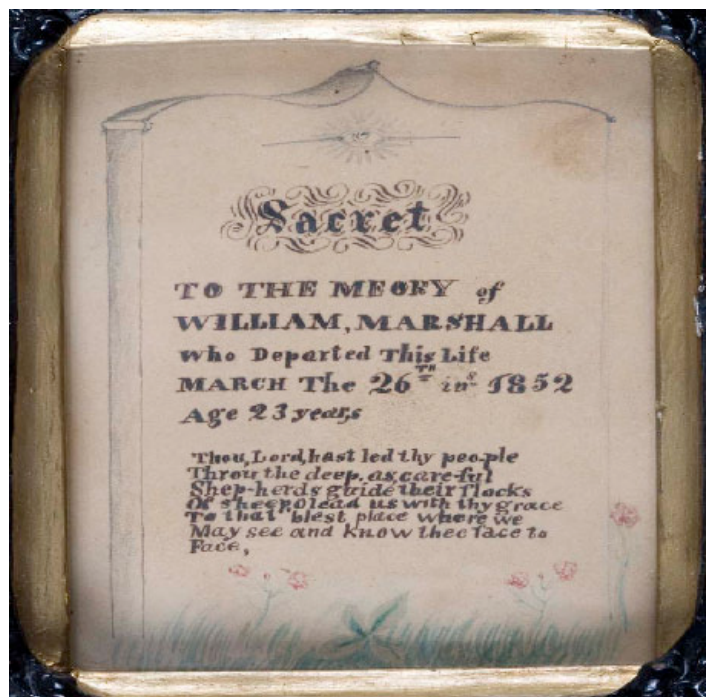 Sacret
TO THE MEORY of
WILLIAM, MARSHALL
Who Departed This Life
MARCH The 26TH ins 1852
Age 23 years
Thou, Lord, hast led thy people
Throu the deep, as, care-ful
Shep-herds guide their flocks
Of sheep, O lead us with thy grace
To that blest place where we
May see and know thee face to
Face,